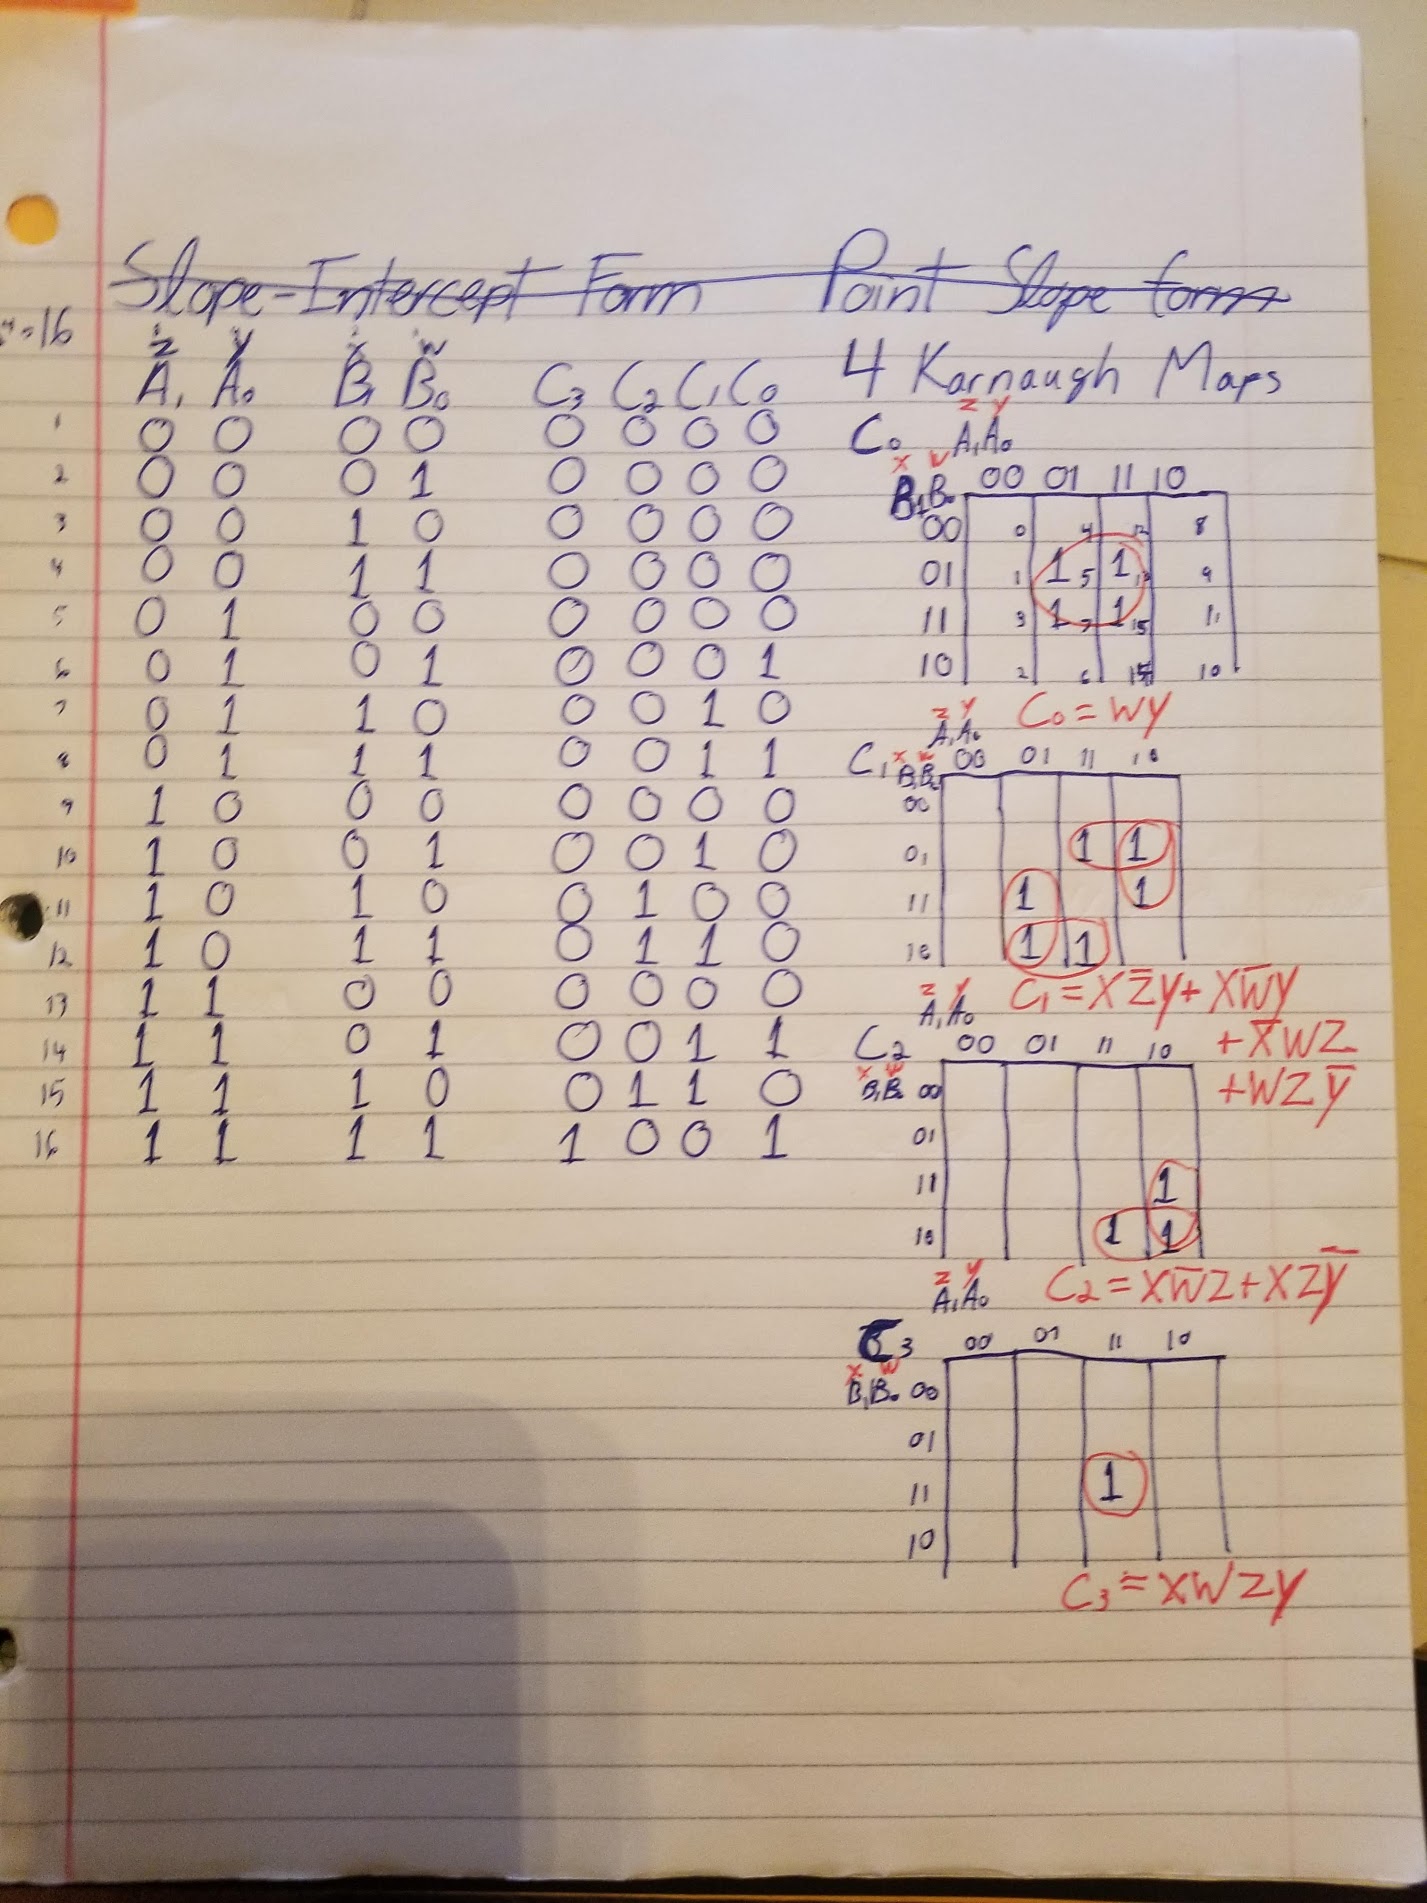 Slope-Intercept Form Point Slope form
=16
z y x w
A₁ A₀ B₁ B₀ C₃ C₂ C₁ C₀
1 0 0 0 0 0 0 0 0
2 0 0 0 1 0 0 0 0
3 0 0 1 0 0 0 0 0
4 0 0 1 1 0 0 0 0
5 0 1 0 0 0 0 0 0
6 0 1 0 1 0 0 0 1
7 0 1 1 0 0 0 1 0
8 0 1 1 1 0 0 1 1
9 1 0 0 0 0 0 0 0
10 1 0 0 1 0 0 1 0
11 1 0 1 0 0 1 0 0
12 1 0 1 1 0 1 1 0
13 1 1 0 0 0 0 0 0
14 1 1 0 1 0 0 1 1
15 1 1 1 0 0 1 1 0
16 1 1 1 1 1 0 0 1
4 Karnaugh Maps
z y
C₀ A₁A₀
x w
B₁B₀ 00 01 11 10
00 0 4 12 8
01 1 1 5 1 13 9
11 3 1 7 1 15 11
10 2 6 10
C₀ = wy
z y
A₁A₀
C₁ x w 00 01 11 10
B₁B₀
00
01 1 1
11 1 1
10 1 1
C₁ = xz̅y + xw̅y
+ x̅wz
+ wzy̅
z y
A₁A₀
C₂ 00 01 11 10
x w
B₁B₀ 00
01
11 1
10 1 1
C₂ = xw̅z + xzy̅
z y
A₁A₀
C₃ 00 01 11 10
x w
B₁B₀ 00
01
11 1
10
C₃ = xwzy